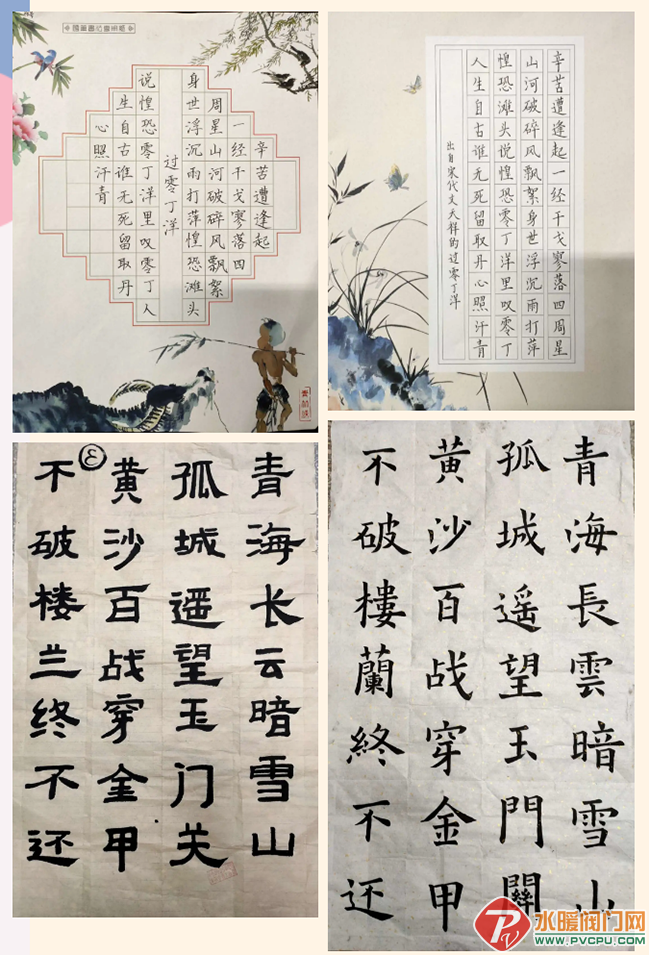 辛苦遭逢起
一经干戈寥落四
周星山河破碎风飘絮
身世浮沉雨打萍惶恐滩头
过零丁洋
说惶恐零丁洋里叹零丁人
生自古谁无死留取丹
心照汗青
辛苦遭逢起一经干戈寥落四周星
山河破碎风飘絮身世浮沉雨打萍
惶恐滩头说惶恐零丁洋里叹零丁
人生自古谁无死留取丹心照汗青
出自宋代文天祥的过零丁洋
青海长云暗雪山
孤城遥望玉门关
黄沙百战穿金甲
不破楼兰终不还
3
青海長雲暗雪山
孤城遥望玉門關
黄沙百战穿金甲
不破樓蘭終不还
水暖阀门网
WWW.PVCPU.COM